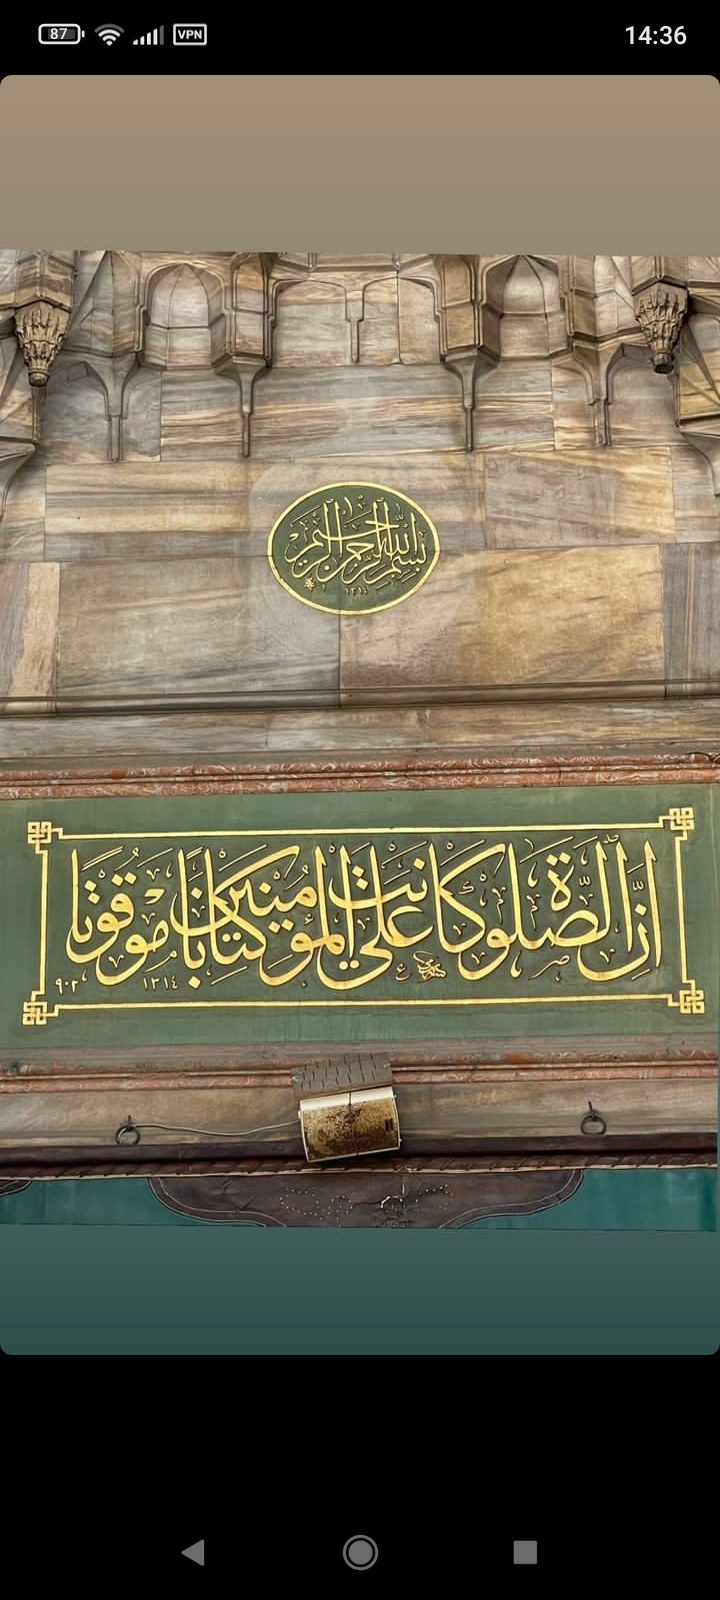 87 VPN 14:36
بسم الله الرحمن الرحيم
١٣١٤
ان الصلوة كانت على المؤمنين كتابا موقوتا
١٣١٤ ٩٠٢